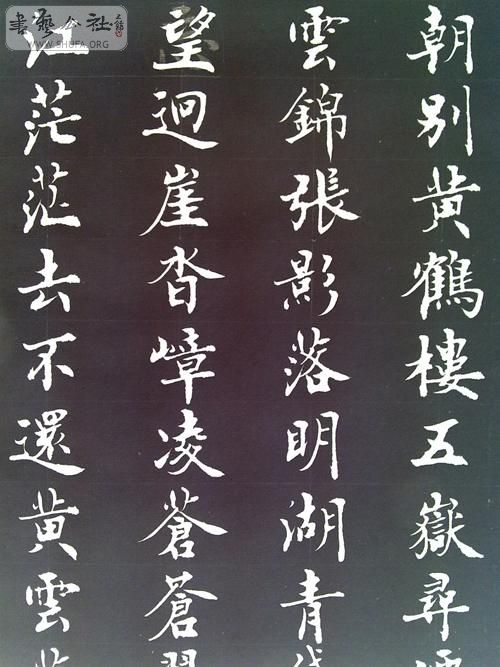 朝別黄鶴樓五嶽尋
雲錦張影落明湖青
望迴崖沓嶂凌蒼蒼
江茫茫去不還黄雲
書藝公社
WWW.SHUFA.ORG